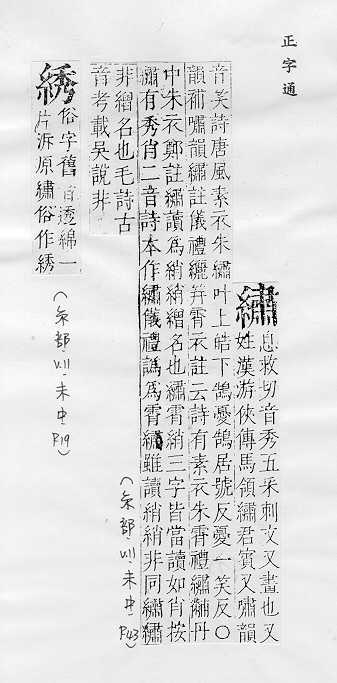 正字通
繡 息救切音秀五采刺文又畫也又
姓漢游俠傳馬領繡君賓又嘯韻
音笑詩唐風素衣朱繡叶上皓下鵠憂鵠居號反憂一笑反〇
韻補嘯韻繡註儀禮纚笄霄衣註云詩有素衣朱霄禮繡黼丹
中朱衣鄭註繡讀爲綃綃繒名也繡霄綃三字皆當讀如肖按
繡有秀肖二音詩本作繡儀禮譌爲霄繡雖讀綃綃非同繡繡
非繒名也毛詩古
音考載吳說非
綉 俗字舊音透綿一
片泝原繡俗作綉
(糸部.VII.未中 P.43)
(糸部.VII.未中 P.19)